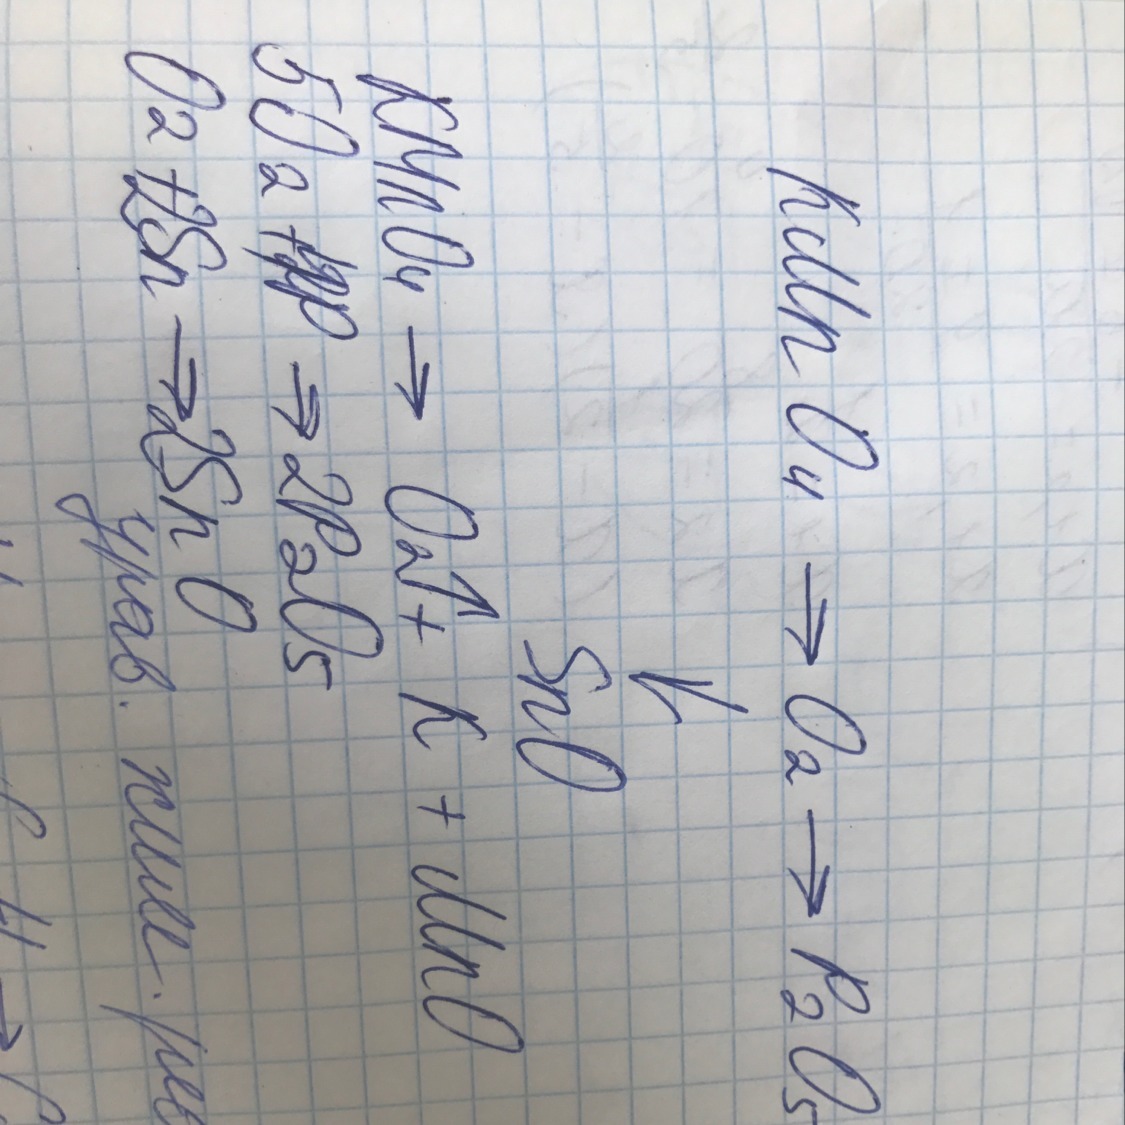 KMnO₄ → O₂ → P₂O₅
↓
SnO
KMnO₄ → O₂↑ + K + MnO
5O₂ + 4P → 2P₂O₅
O₂ + 2Sn → 2SnO
урав. хим.